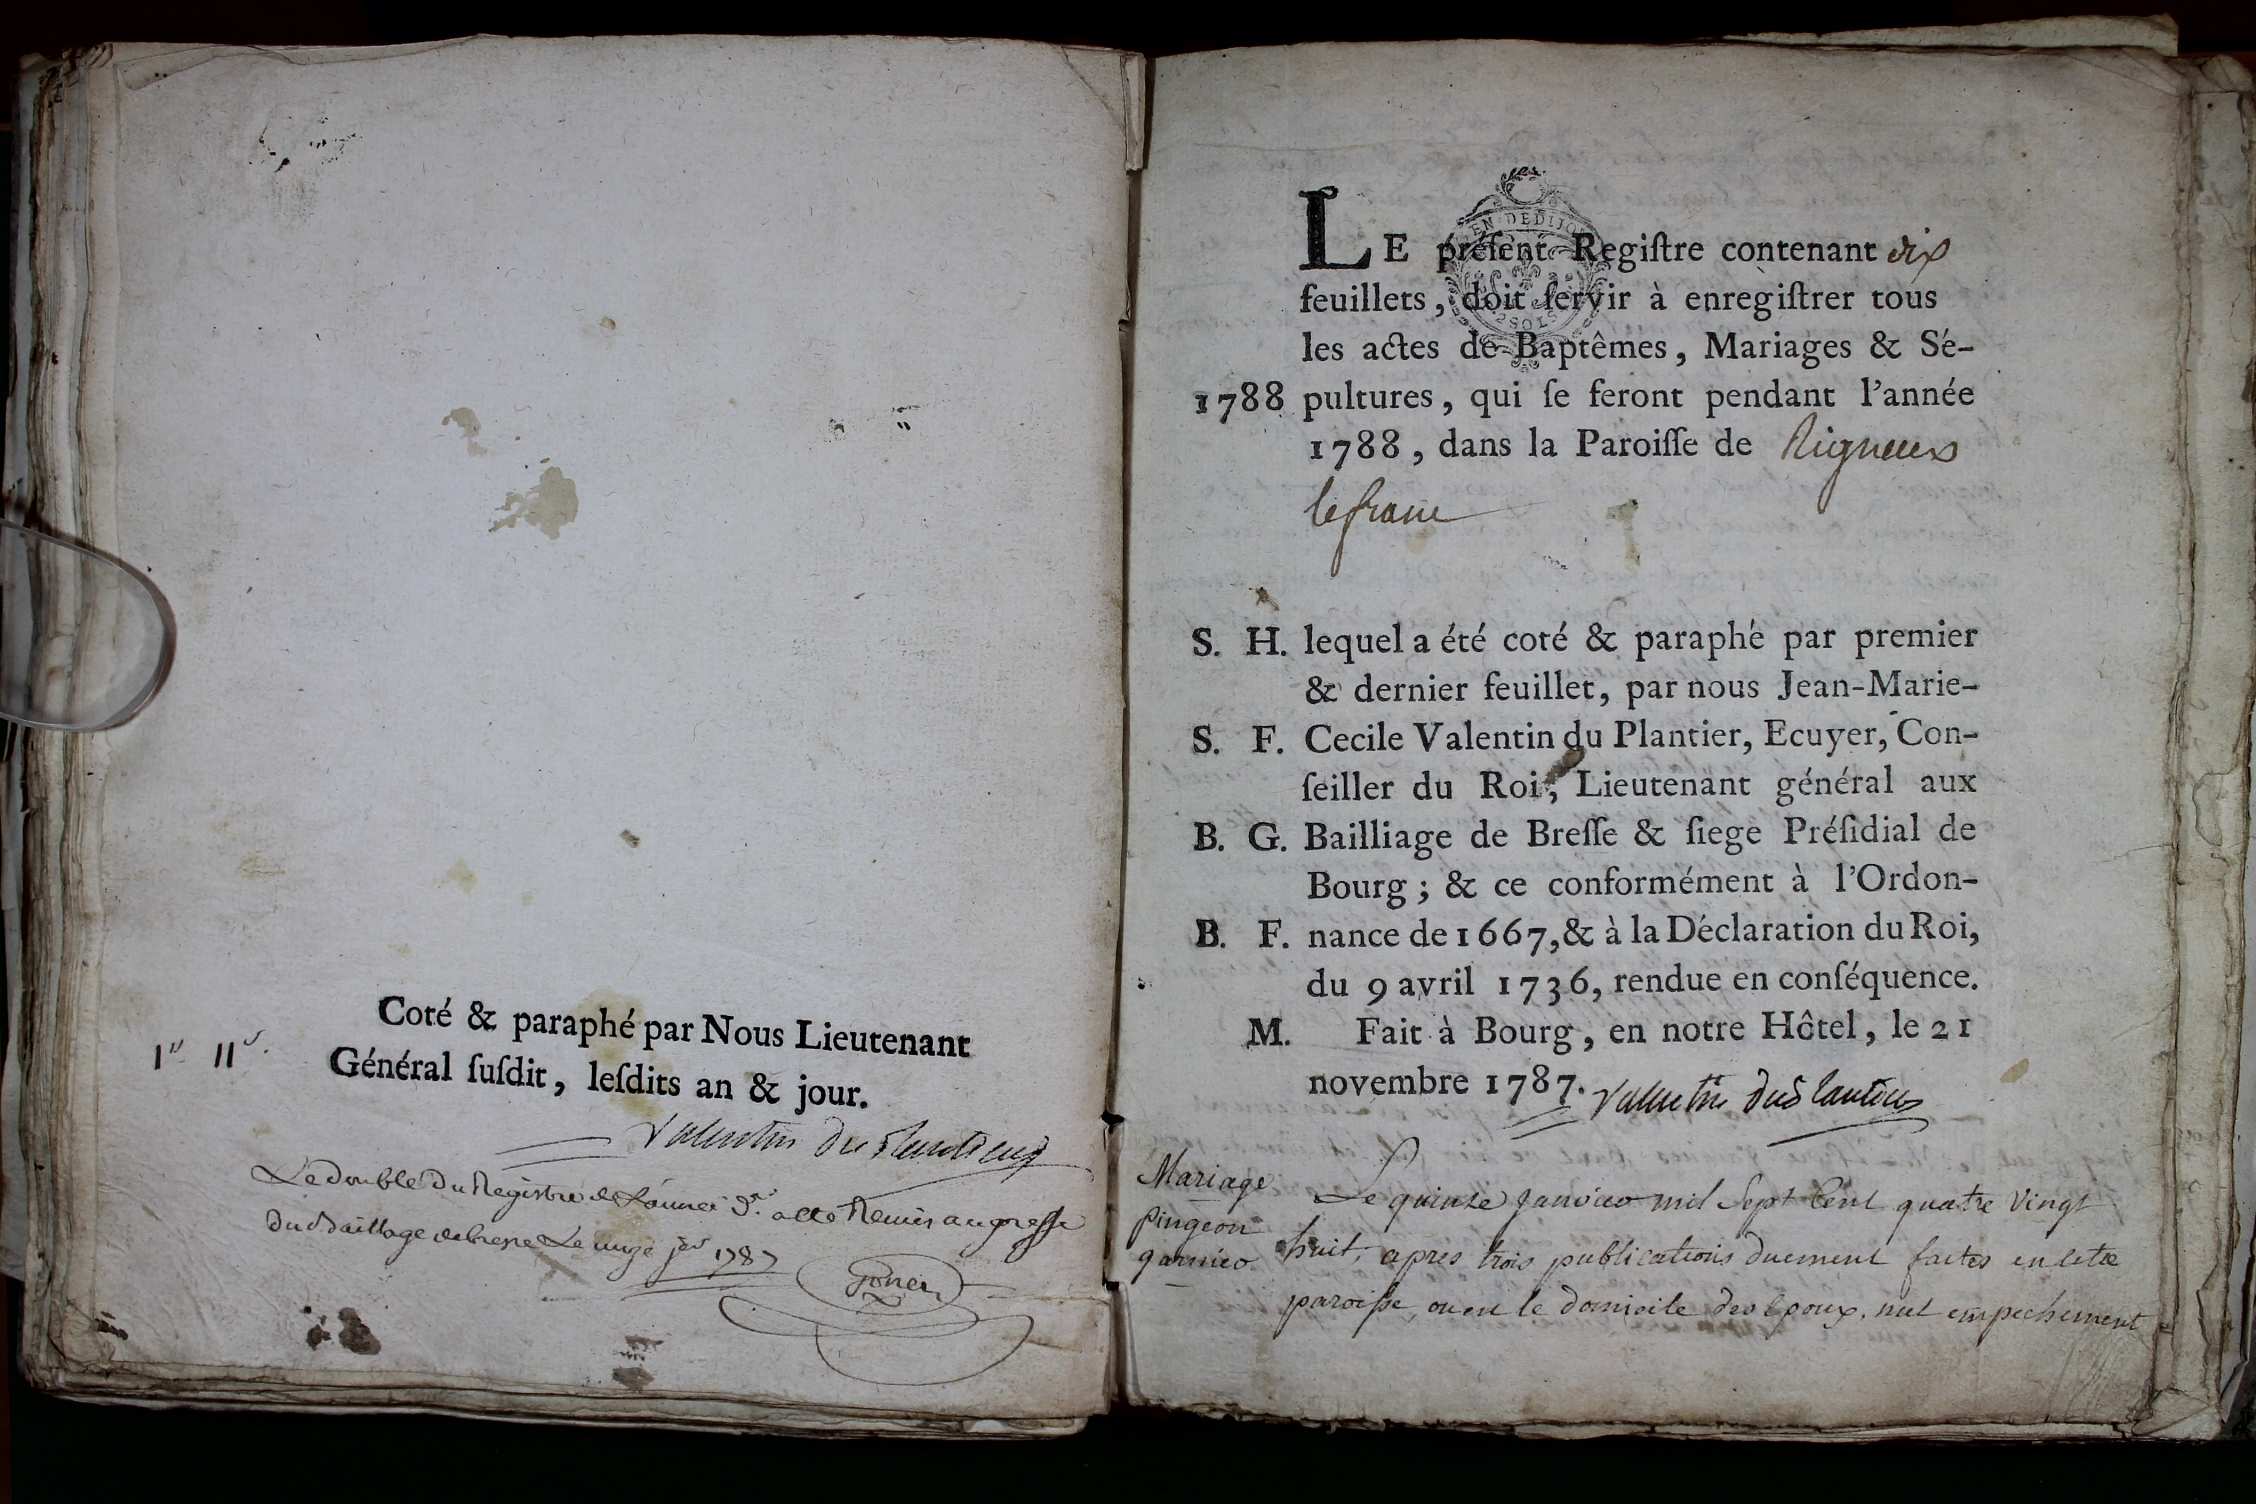 Coté & paraphé par Nous Lieutenant
Général ſuſdit, leſdits an & jour.
Valentin du Plantier
Le double du Registre de L'année d. a été Remis au greffe
du Bailliage de bresse Le onze 1787
LE préſent Regiſtre contenant dix
feuillets, doit ſervir à enregiſtrer tous
les actes de Baptêmes, Mariages & Sé-
1788 pultures, qui ſe feront pendant l'année
1788, dans la Paroiſſe de Rigneux
le franc
S. H. lequel a été coté & paraphé par premier
& dernier feuillet, par nous Jean-Marie-
S. F. Cecile Valentin du Plantier, Ecuyer, Con-
ſeiller du Roi, Lieutenant général aux
B. G. Bailliage de Breſſe & ſiege Préſidial de
Bourg ; & ce conformément à l'Ordon-
B. F. nance de 1667, & à la Déclaration du Roi,
du 9 avril 1736, rendue en conſéquence.
M. Fait à Bourg, en notre Hôtel, le 21
novembre 1787. Valentin du Plantier
Mariage
pingeon
garnier
Le quinze janvier mil Sept Cent quatre Vingt
huit, apres trois publications duement faites en cette
paroisse, ou est le domicile des Epoux, nul empechement